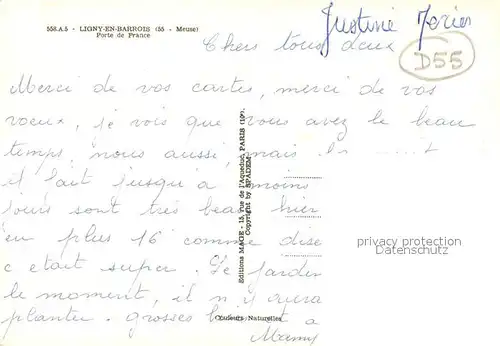 558.A.5 - LIGNY-EN-BARROIS (55 - Meuse)
Porte de France
Justine
D55
Chers tous deux
Merci de vos cartes, merci de vos
voeux, je vois que vous avez le beau
temps, nous aussi, mais
il fait jusqu'à moins
jours sont très beau hier
en plus 16 comme dise
c etait super. Le jardin
le moment, il n'y aura
planter. grosses à
Mamy
Editions MAGE - 15, rue de l'Aqueduc, PARIS (10e)
Copyright by SPADEM
Couleurs Naturelles
privacy protection
Datenschutz